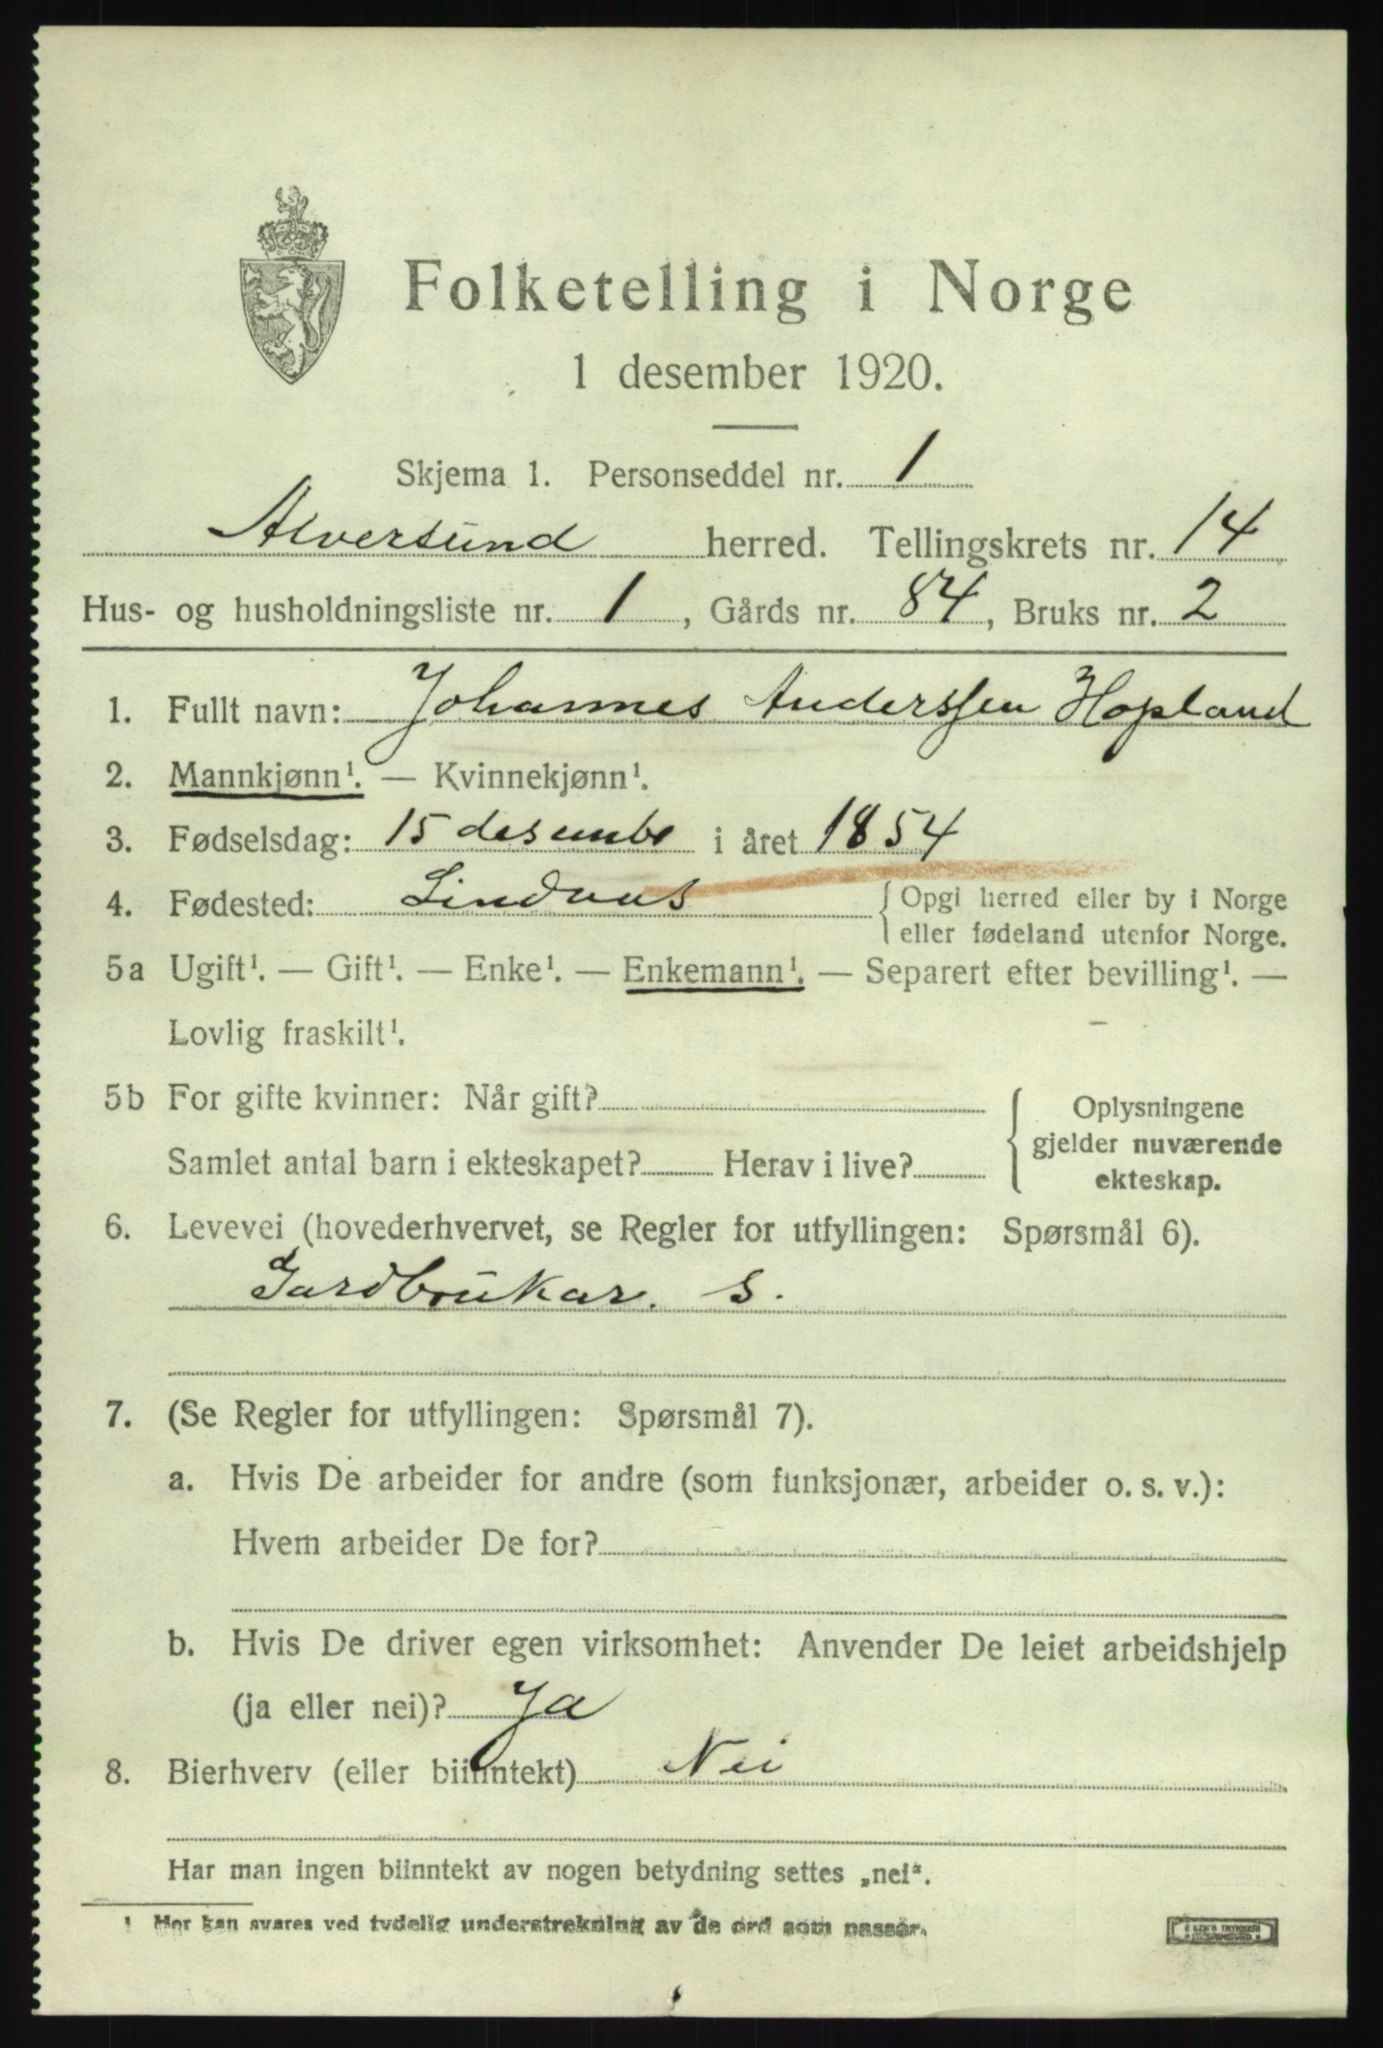 Folketelling i Norge
1 desember 1920.
Skjema 1. Personseddel nr. 1
Alversund herred. Tellingskrets nr. 14
Hus- og husholdningsliste nr. 1, Gårds nr. 84, Bruks nr. 2
1. Fullt navn: Johannes Anderssen Hopland
2. Mannkjønn¹. — Kvinnekjønn¹.
3. Fødselsdag: 15 desembr i året 1854
4. Fødested: Lindaas { Opgi herred eller by i Norge
eller fødeland utenfor Norge.
5a Ugift¹. — Gift¹. — Enke¹. — Enkemann¹. — Separert efter bevilling¹. —
Lovlig fraskilt¹.
5b For gifte kvinner: Når gift? { Oplysningene
gjelder nuværende
Samlet antal barn i ekteskapet? Herav i live?
ekteskap.
6. Levevei (hovederhvervet, se Regler for utfyllingen: Spørsmål 6).
Gardbrukar. S.
7. (Se Regler for utfyllingen: Spørsmål 7).
a. Hvis De arbeider for andre (som funksjonær, arbeider o. s. v.):
Hvem arbeider De for?
b. Hvis De driver egen virksomhet: Anvender De leiet arbeidshjelp
(ja eller nei)? Ja
8. Bierhverv (eller biinntekt) Nei
Har man ingen biinntekt av nogen betydning settes „nei“.
¹ Her kan svares ved tydelig understrekning av de ord som passer.